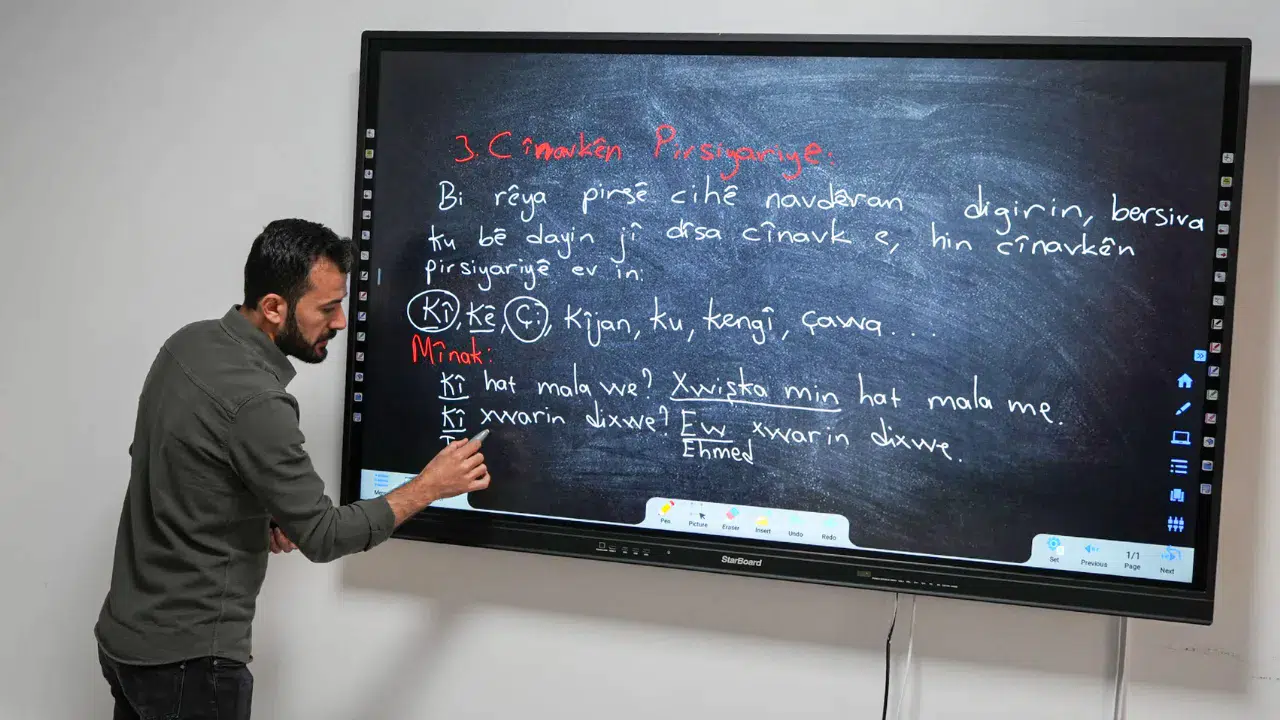 3. Cînavkên Pirsiyariye:
Bi rêya pirsê cihê navdêran digirin, bersiva
ku bê dayin jî dîsa cînavk e, hin cînavkên
pirsiyariyê ev in:
Kî, Kê, Çi, Kîjan, ku, kengî, çawa....
Mînak:
Kî hat mala we? Xwişka min hat mala me.
Kî xwarin dixwe? Ew xwarin dixwe.
Ehmed
Pen
Picture
Eraser
Insert
Undo
Redo
Set
Previous
1/1
Page
Next
StarBoard